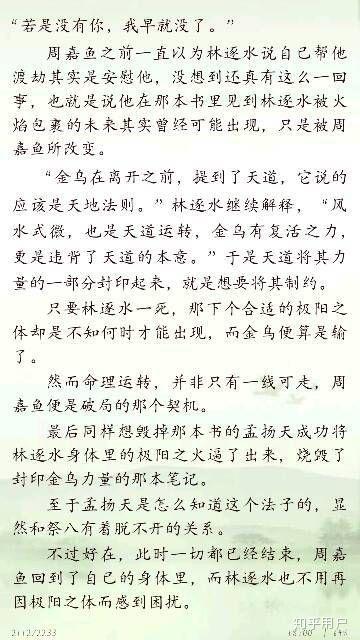 “若是没有你，我早就没了。”
周嘉鱼之前一直以为林逐水说自己帮他
渡劫其实是安慰他，没想到还真有这么一回
事，也就是说他在那本书里见到林逐水被火
焰包裹的未来其实曾经可能出现，只是被周
嘉鱼所改变。
“金乌在离开之前，提到了天道，它说的
应该是天地法则。”林逐水继续解释，“风
水式微，也是天道运转，金乌有复活之力，
更是违背了天道的本意。”于是天道将其力
量的一部分封印起来，就是想要将其制约。
只要林逐水一死，那下个合适的极阳之
体却是不知何时才能出现，而金乌便算是输
了。
然而命理运转，并非只有一线可走，周
嘉鱼便是破局的那个契机。
最后同样想毁掉那本书的孟扬天成功将
林逐水身体里的极阳之火逼了出来，烧毁了
封印金乌力量的那本笔记。
至于孟扬天是怎么知道这个法子的，显
然和祭八有着脱不开的关系。
不过好在，此时一切都已经结束，周嘉
鱼回到了自己的身体里，而林逐水也不用再
因极阳之体而感到困扰。
2112/2233
知乎用户